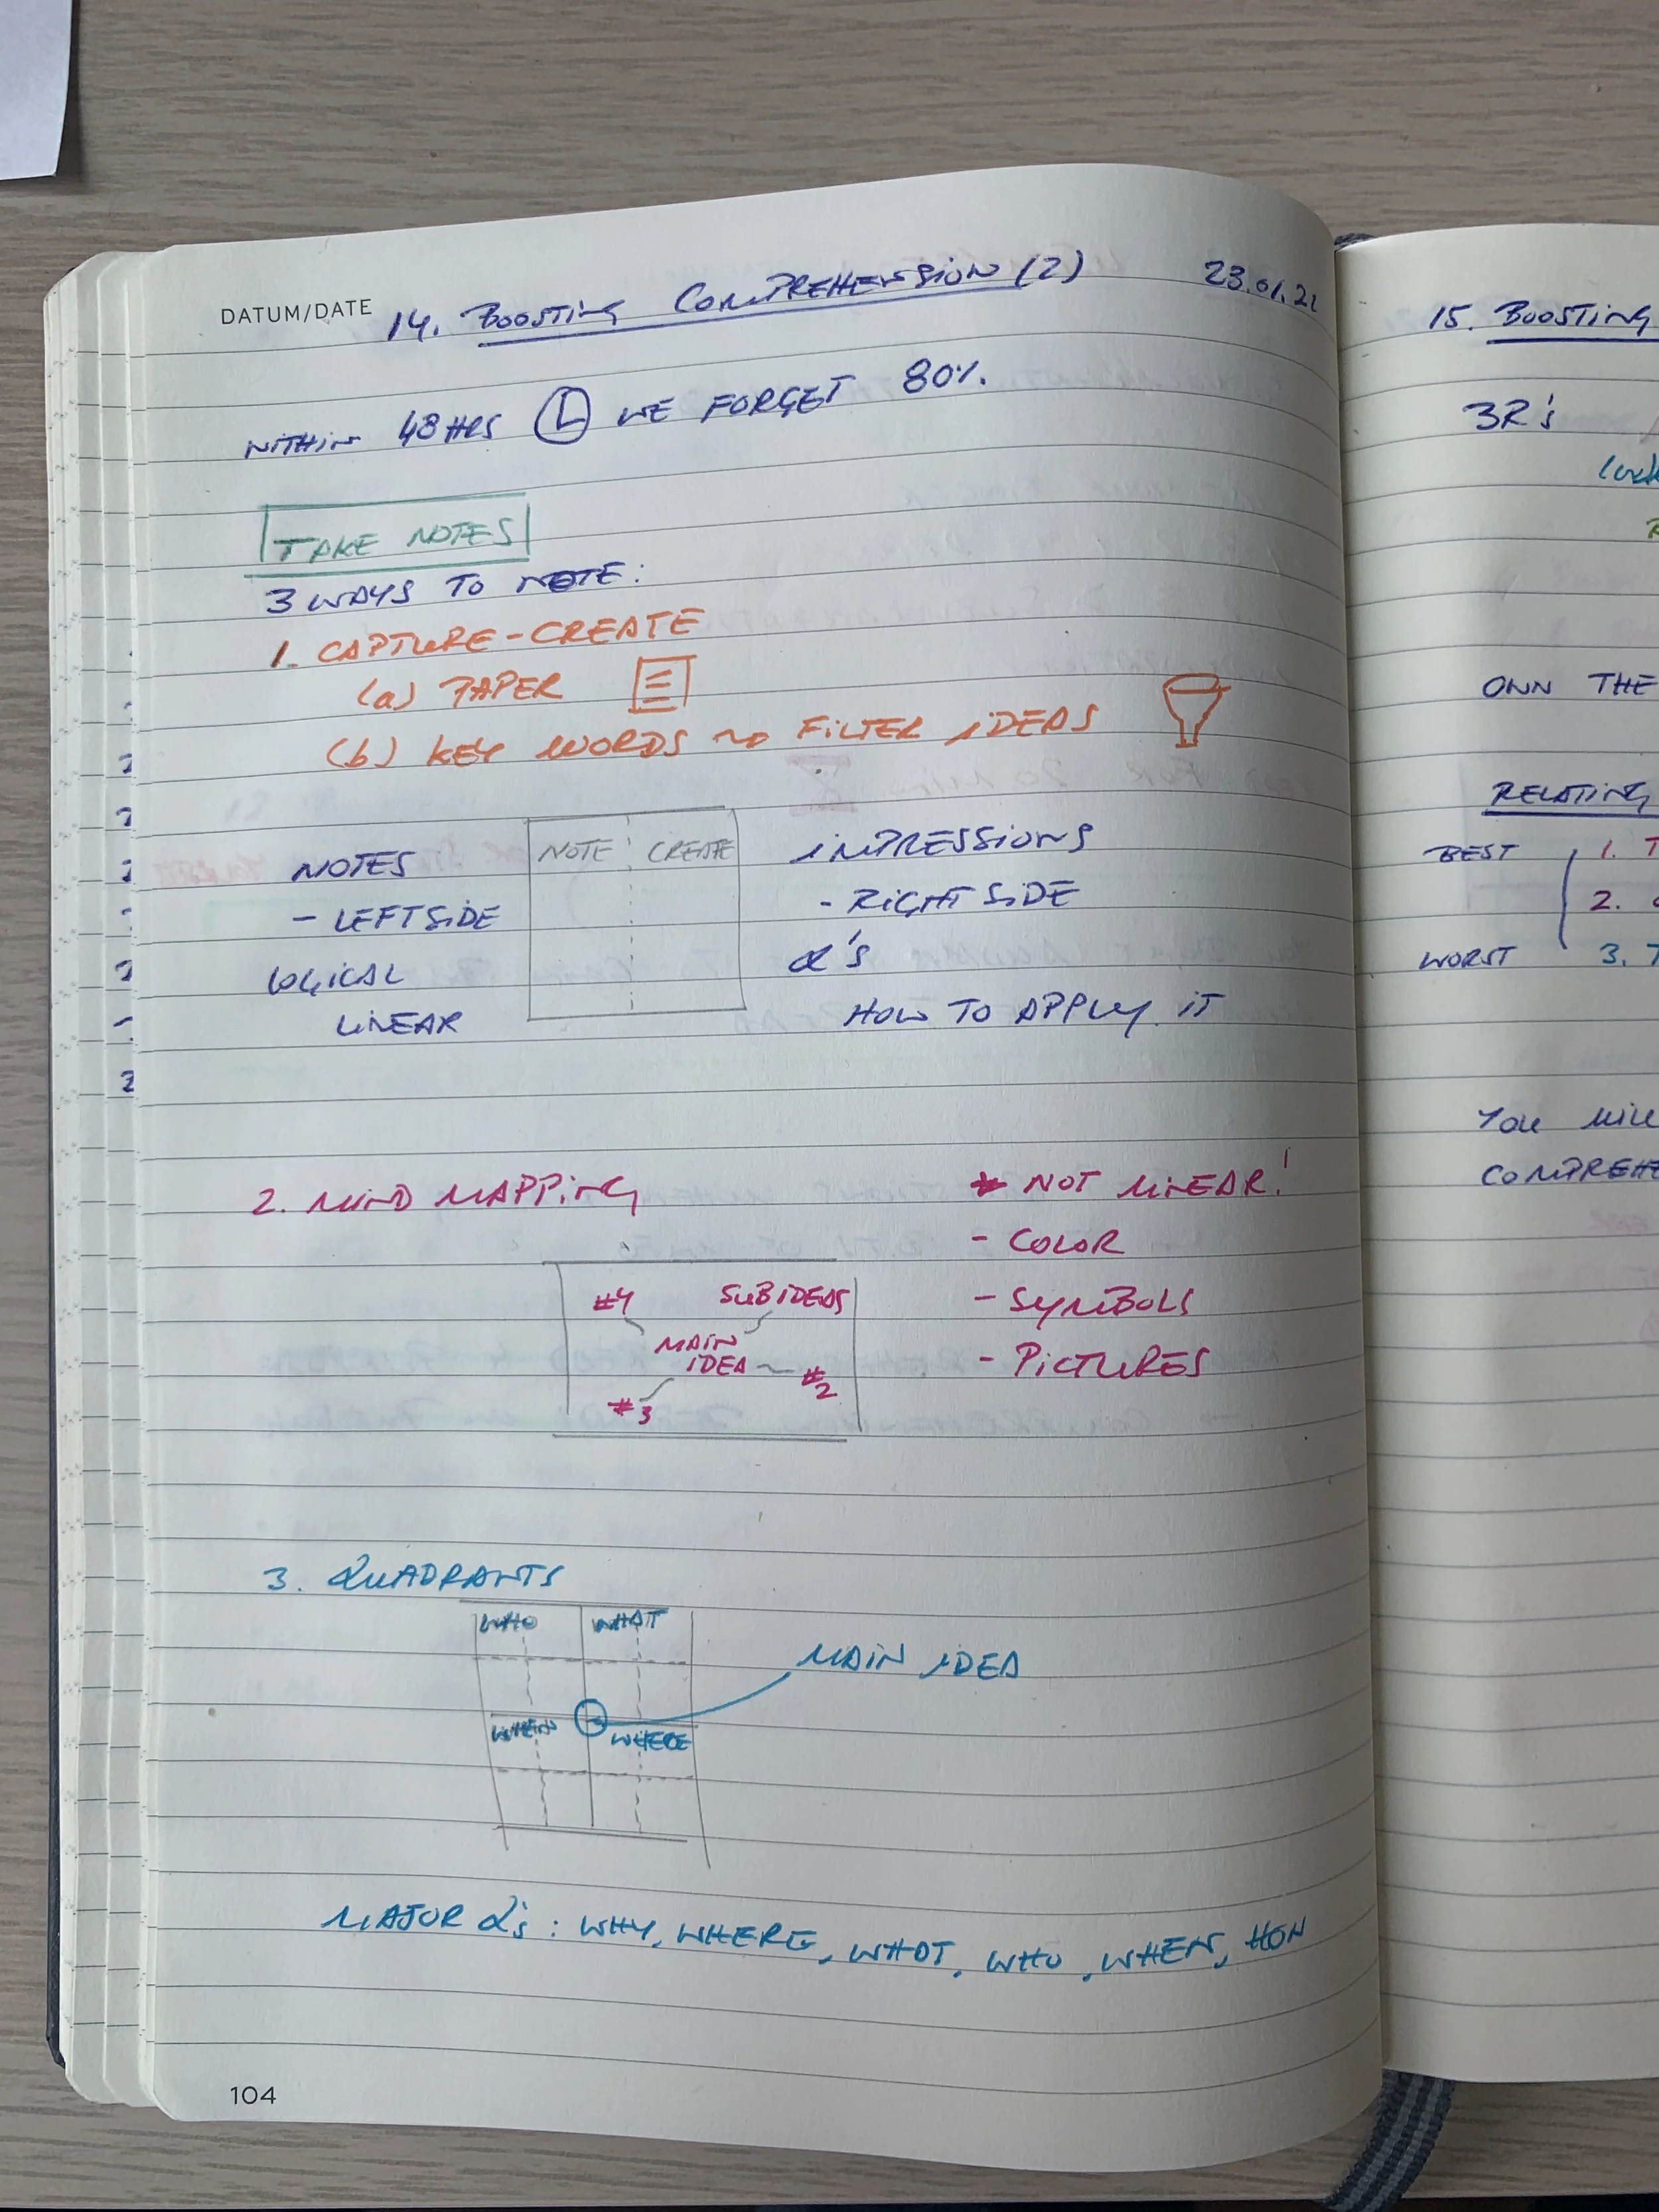 DATUM/DATE 14. BOOSTING COMPREHENSION (2) 23.01.21
WITHIN 48 HRS WE FORGET 80%.
TAKE NOTES
3 WAYS TO NOTE:
1. CAPTURE-CREATE
(a) PAPER
(b) KEY WORDS → FILTER IDEAS
NOTE CREATE
NOTES
- LEFT SIDE
LOGICAL
LINEAR
IMPRESSIONS
- RIGHT SIDE
Q's
HOW TO APPLY IT
2. MIND MAPPING
* NOT LINEAR!
- COLOR
- SYMBOLS
- PICTURES
#4 SUBIDEAS
MAIN
IDEA #2
#3
3. QUADRANTS
WHO WHAT
WHEN WHERE
MAIN IDEA
MAJOR Q's: WHY, WHERE, WHAT, WHO, WHEN, HOW
104
15. BOOSTING
3R's
OWN THE
RELATING
BEST 1. T
2.
WORST 3. T
YOU WILL
COMPREHE